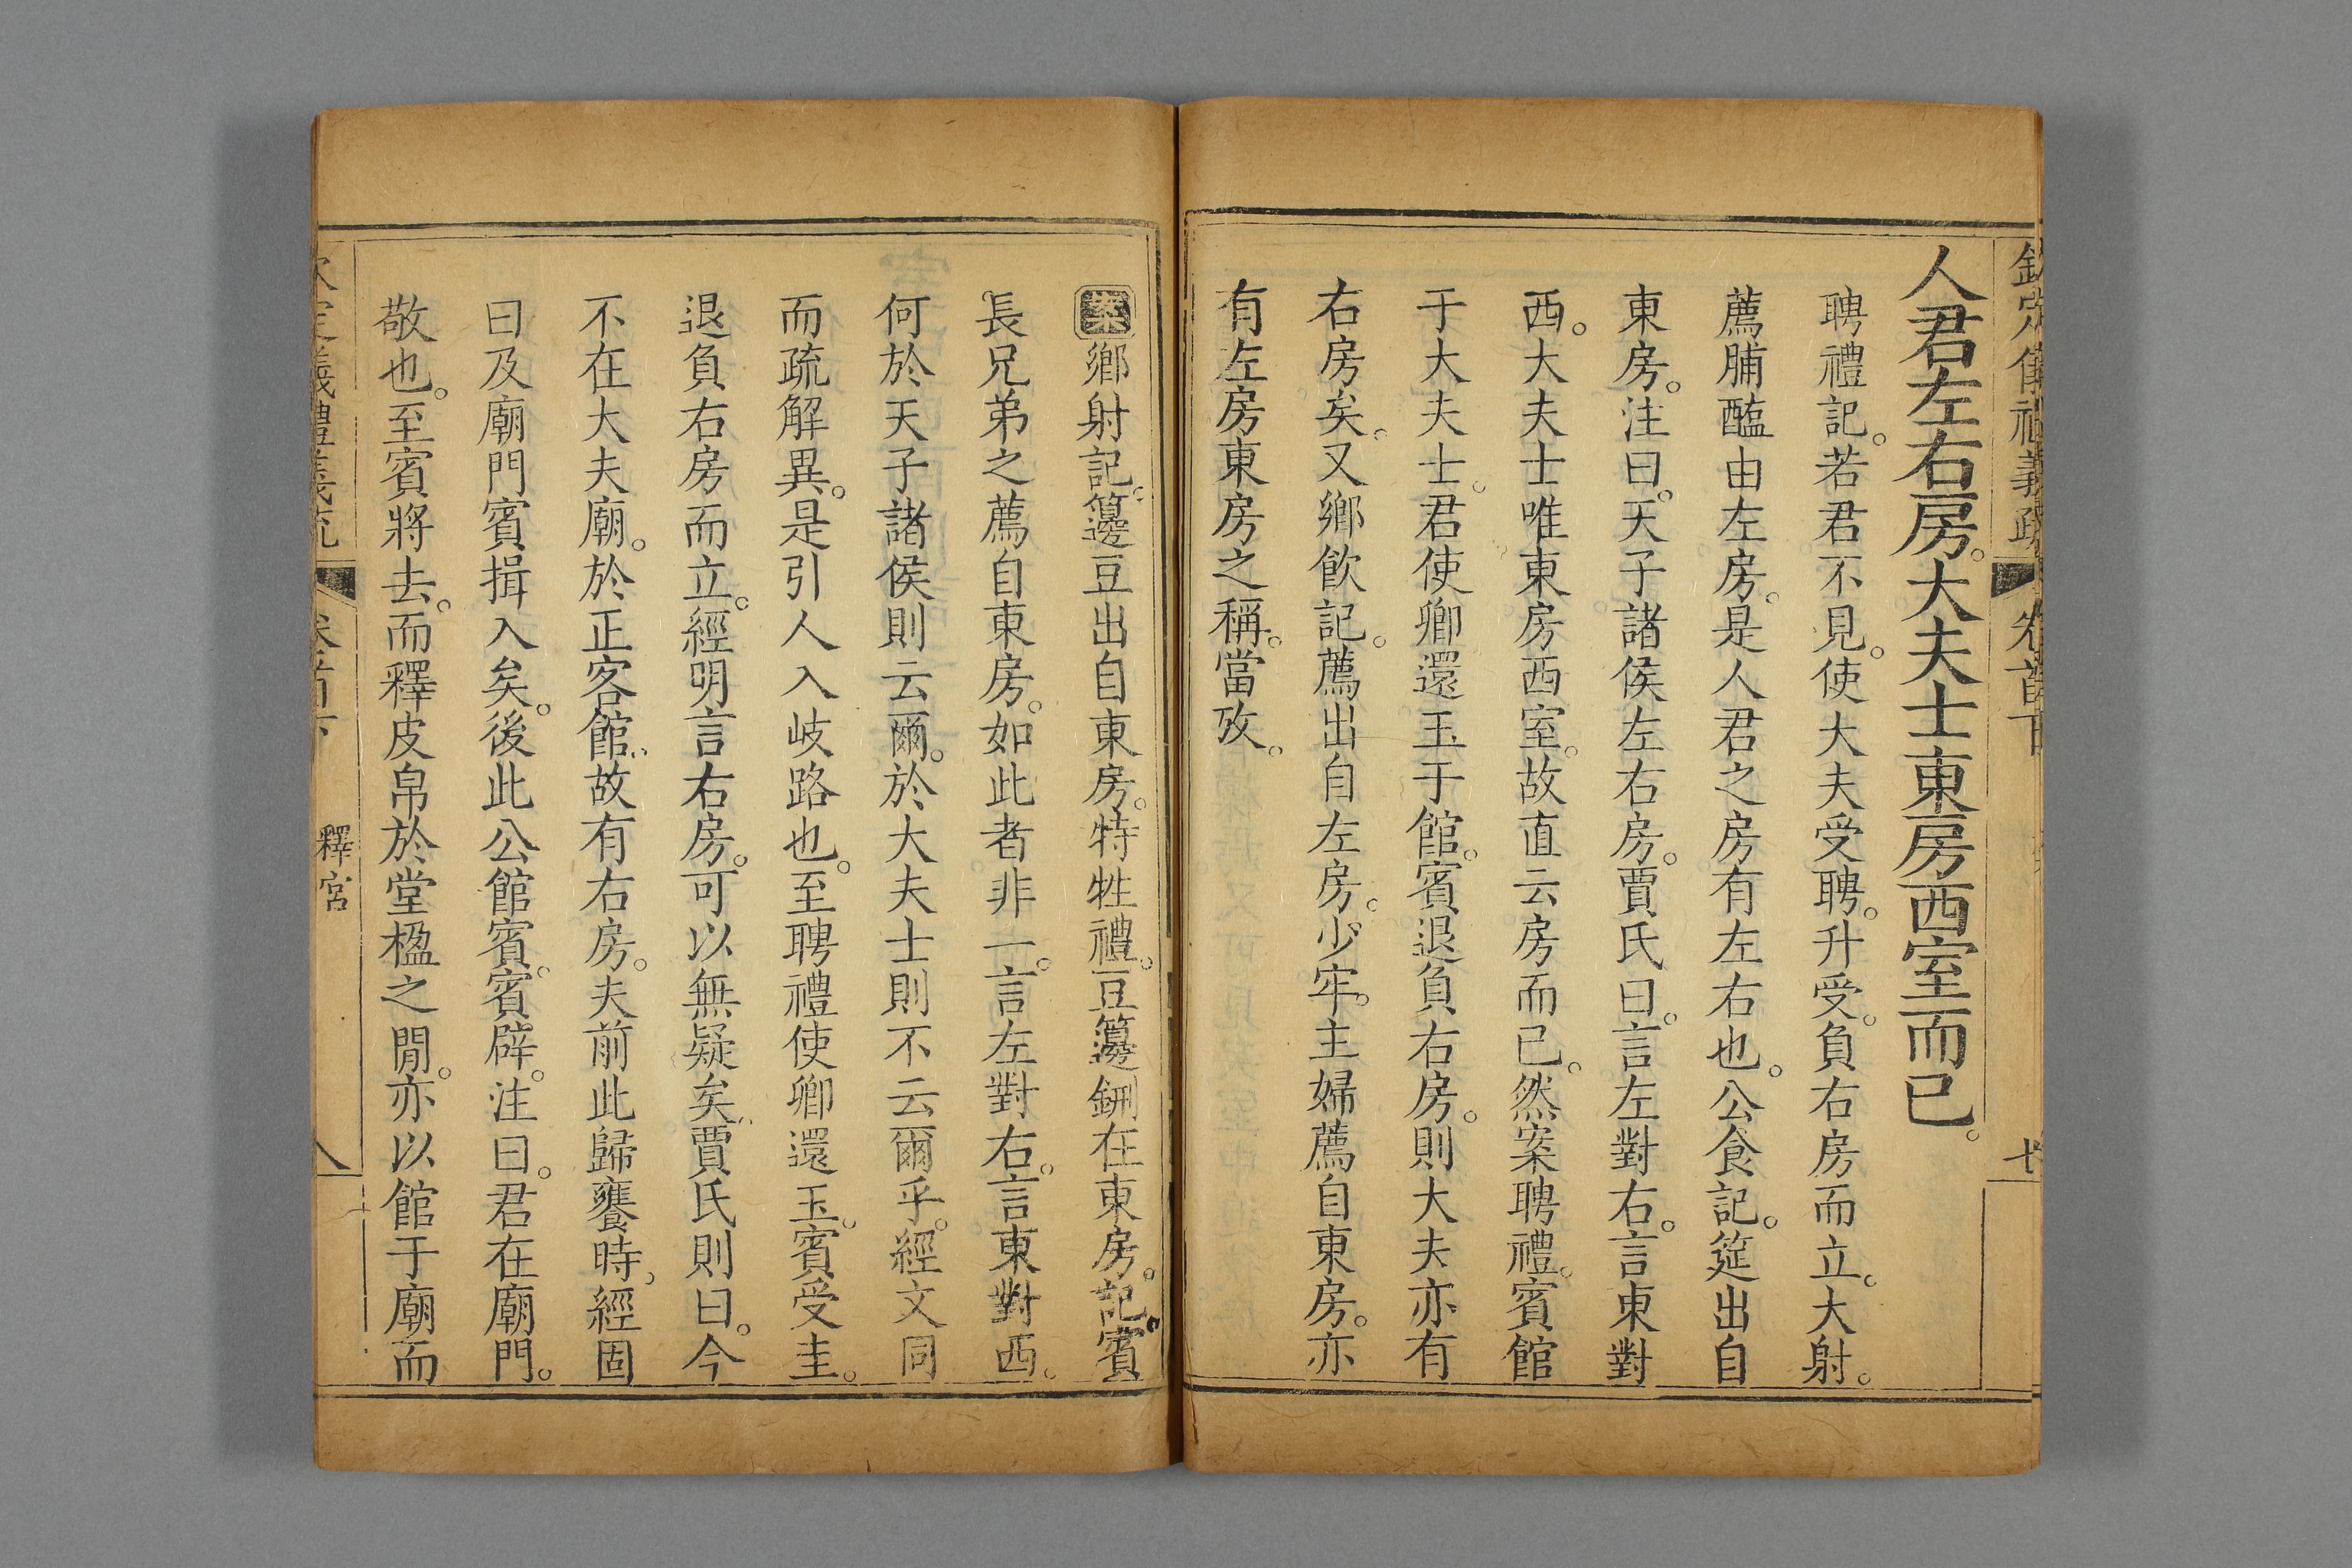 欽定儀禮義疏 卷首下
人君左右房。大夫士東房西室而已。
聘禮記。若君不見。使大夫受聘。升受。負右房而立。大射。
薦脯醢由左房。是人君之房有左右也。公食記。筵出自
東房。注曰。天子諸侯左右房。賈氏曰。言左對右。言東對
西。大夫士唯東房西室。故直云房而已。然案聘禮。賓館
于大夫士。君使卿還玉于館。賓退負右房。則大夫亦有
右房矣。又鄉飲記。薦出自左房。少牢。主婦薦自東房。亦
有左房東房之稱。當攷。
案鄉射記。籩豆出自東房。特牲禮。豆籩鉶在東房。記。賓
長兄弟之薦自東房。如此者非一。言左對右。言東對西。
何於天子諸侯則云爾。於大夫士則不云爾乎。經文同
而疏解異。是引人入岐路也。至聘禮使卿還玉。賓受圭。
退負右房而立。經明言右房。可以無疑矣。賈氏則曰。今
不在大夫廟。於正客館。故有右房。夫前此歸饔時。經固
曰及廟門賓揖入矣。後此公館賓。賓辟。注曰。君在廟門。
敬也。至賓將去。而釋皮帛於堂楹之閒。亦以館于廟而
欽定儀禮義疏 卷首下 釋宮